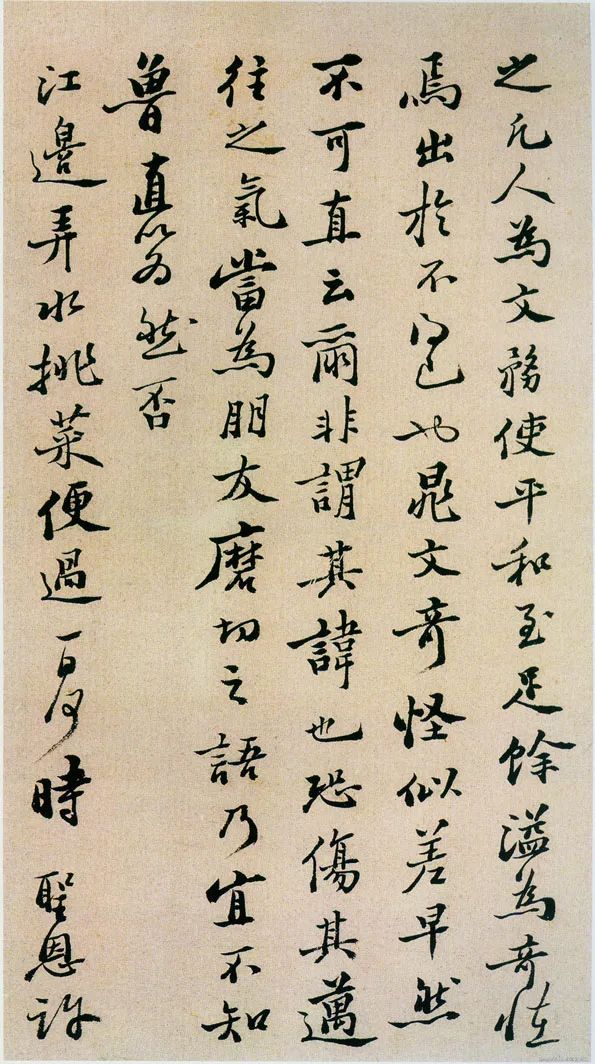 之凡人為文務使平和至足餘溢為奇怪
焉出於不得已也晁文奇怪似差早然
不可直云爾非謂其諱也恐傷其邁
往之氣當為朋友磨切之語乃宜不知
魯直以為然否
江邊弄水挑菜便過一日何時 聖恩許